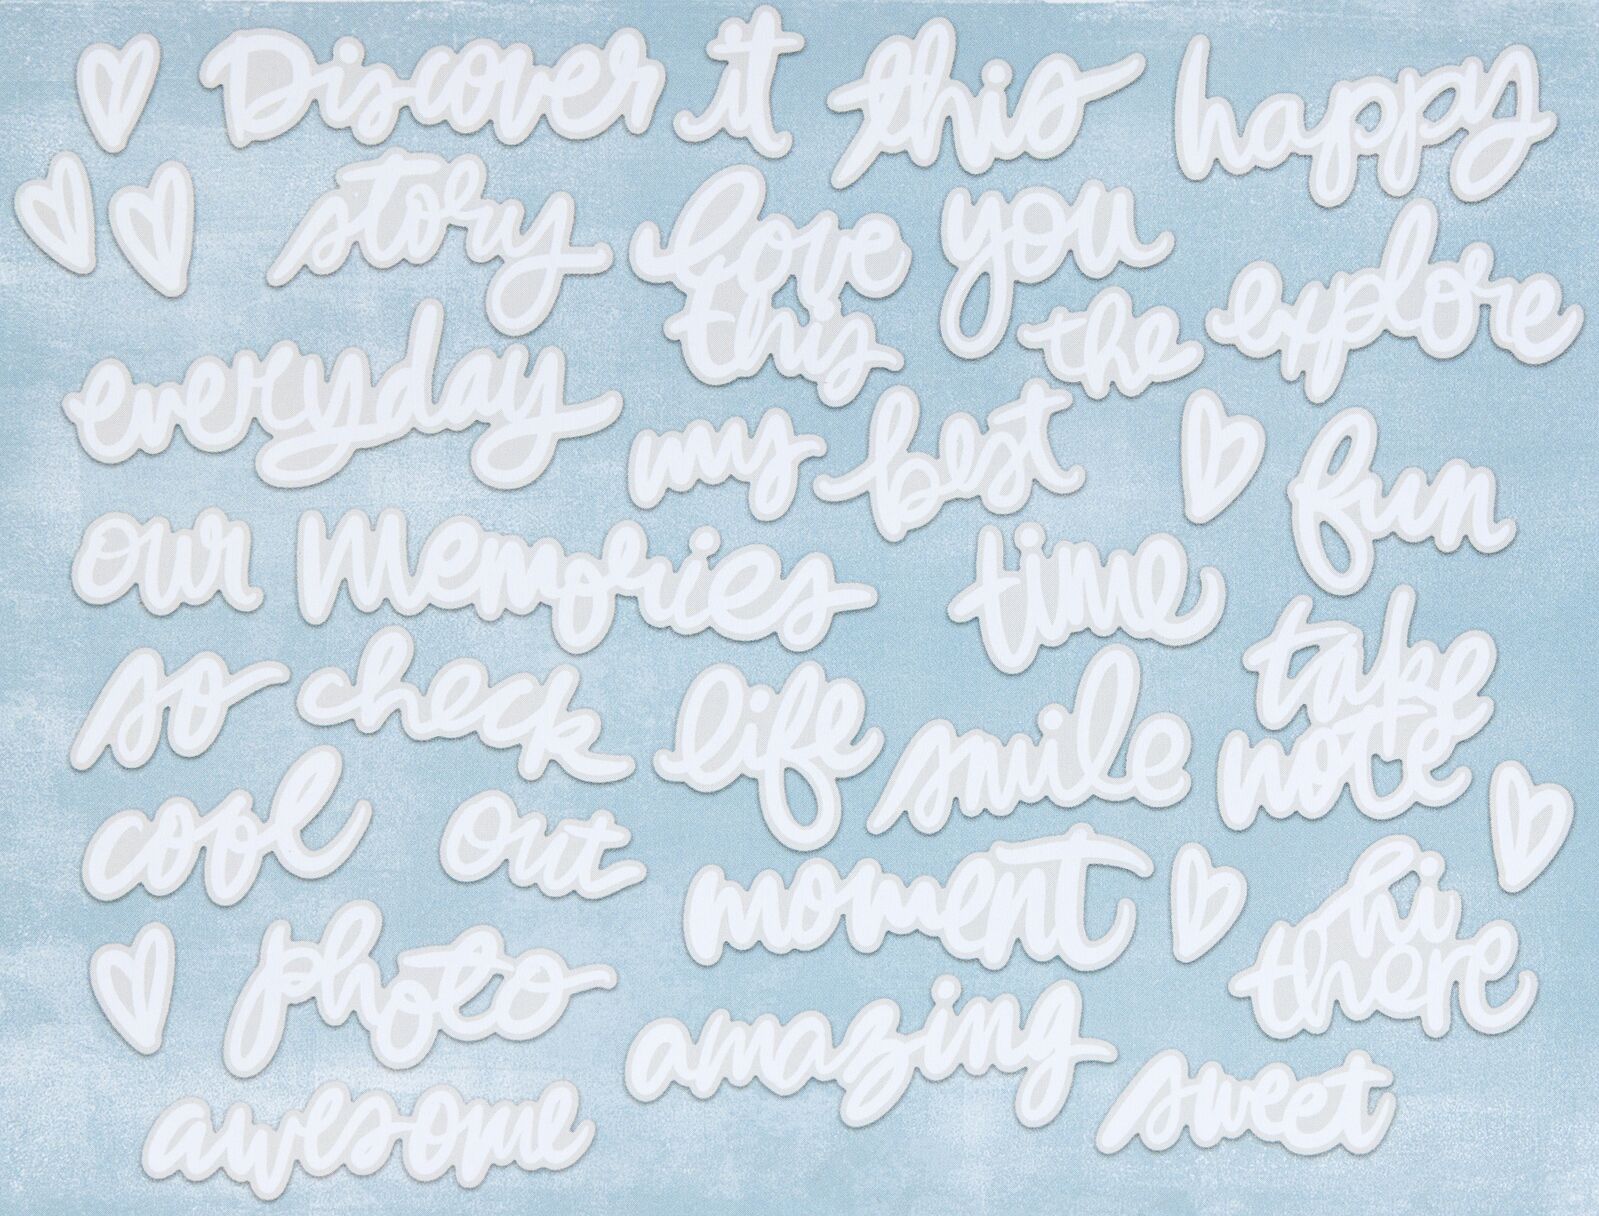 Discover it this happy
story love this you the explore
everyday my best fun
our memories time
so check life smile take note
cool out moment hi there
photo amazing sweet
awesome